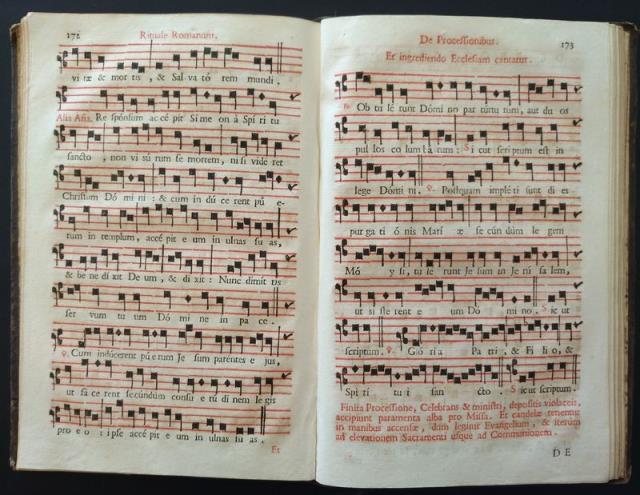 172
Rituale Romanum.
vi tæ & mor tis, & Sal va tó rem mundi.
Alia Aña. Re spónsum ac cé pit Sí me on à Spí ri tu
sancto, non vi sú rum se mortem, ni si vidé ret
Christum Dó mi ni: & cum in dú ce rent pú e-
rum in templum, accé pit e um in ulnas su as,
& be ne dí xit De um, & di xit: Nunc dimit tis
ser vum tu um Dó mi ne in pa ce.
℣. Cum indúcerent pú e rum Je sum parentes e jus,
ut fá ce rent secúndum consu e tú di nem le gis
pro e o: ipse accé pit e um in ulnas su as.
Et
De Processionibus.
173
Et ingrediendo Ecclesiam cantatur.
Ob tu lé runt Dómi no par túrtu rum, aut du os
pul los co lumbá rum: Si cut scriptum est in
lege Dómi ni. ℣. Postquam implé ti sunt di es
purga ti ó nis Marí æ se cún dùm le gem
Mó y si, tu lé runt Je sum in Je rú sa lem,
ut si ste rent e um Dó mi no. Sic ut
scriptum. ℣. Gló ri a Pa tri, & Fi li o, &
Spi rí tu i san cto. Si cut scriptum.
Finita Processione, Celebrans & ministri, depositis violaceis,
accipiunt paramenta alba pro Missa. Et candelæ tenentur
in manibus accensæ, dum legitur Evangelium, & iterum
ad elevationem Sacramenti usque ad Communionem.
D E